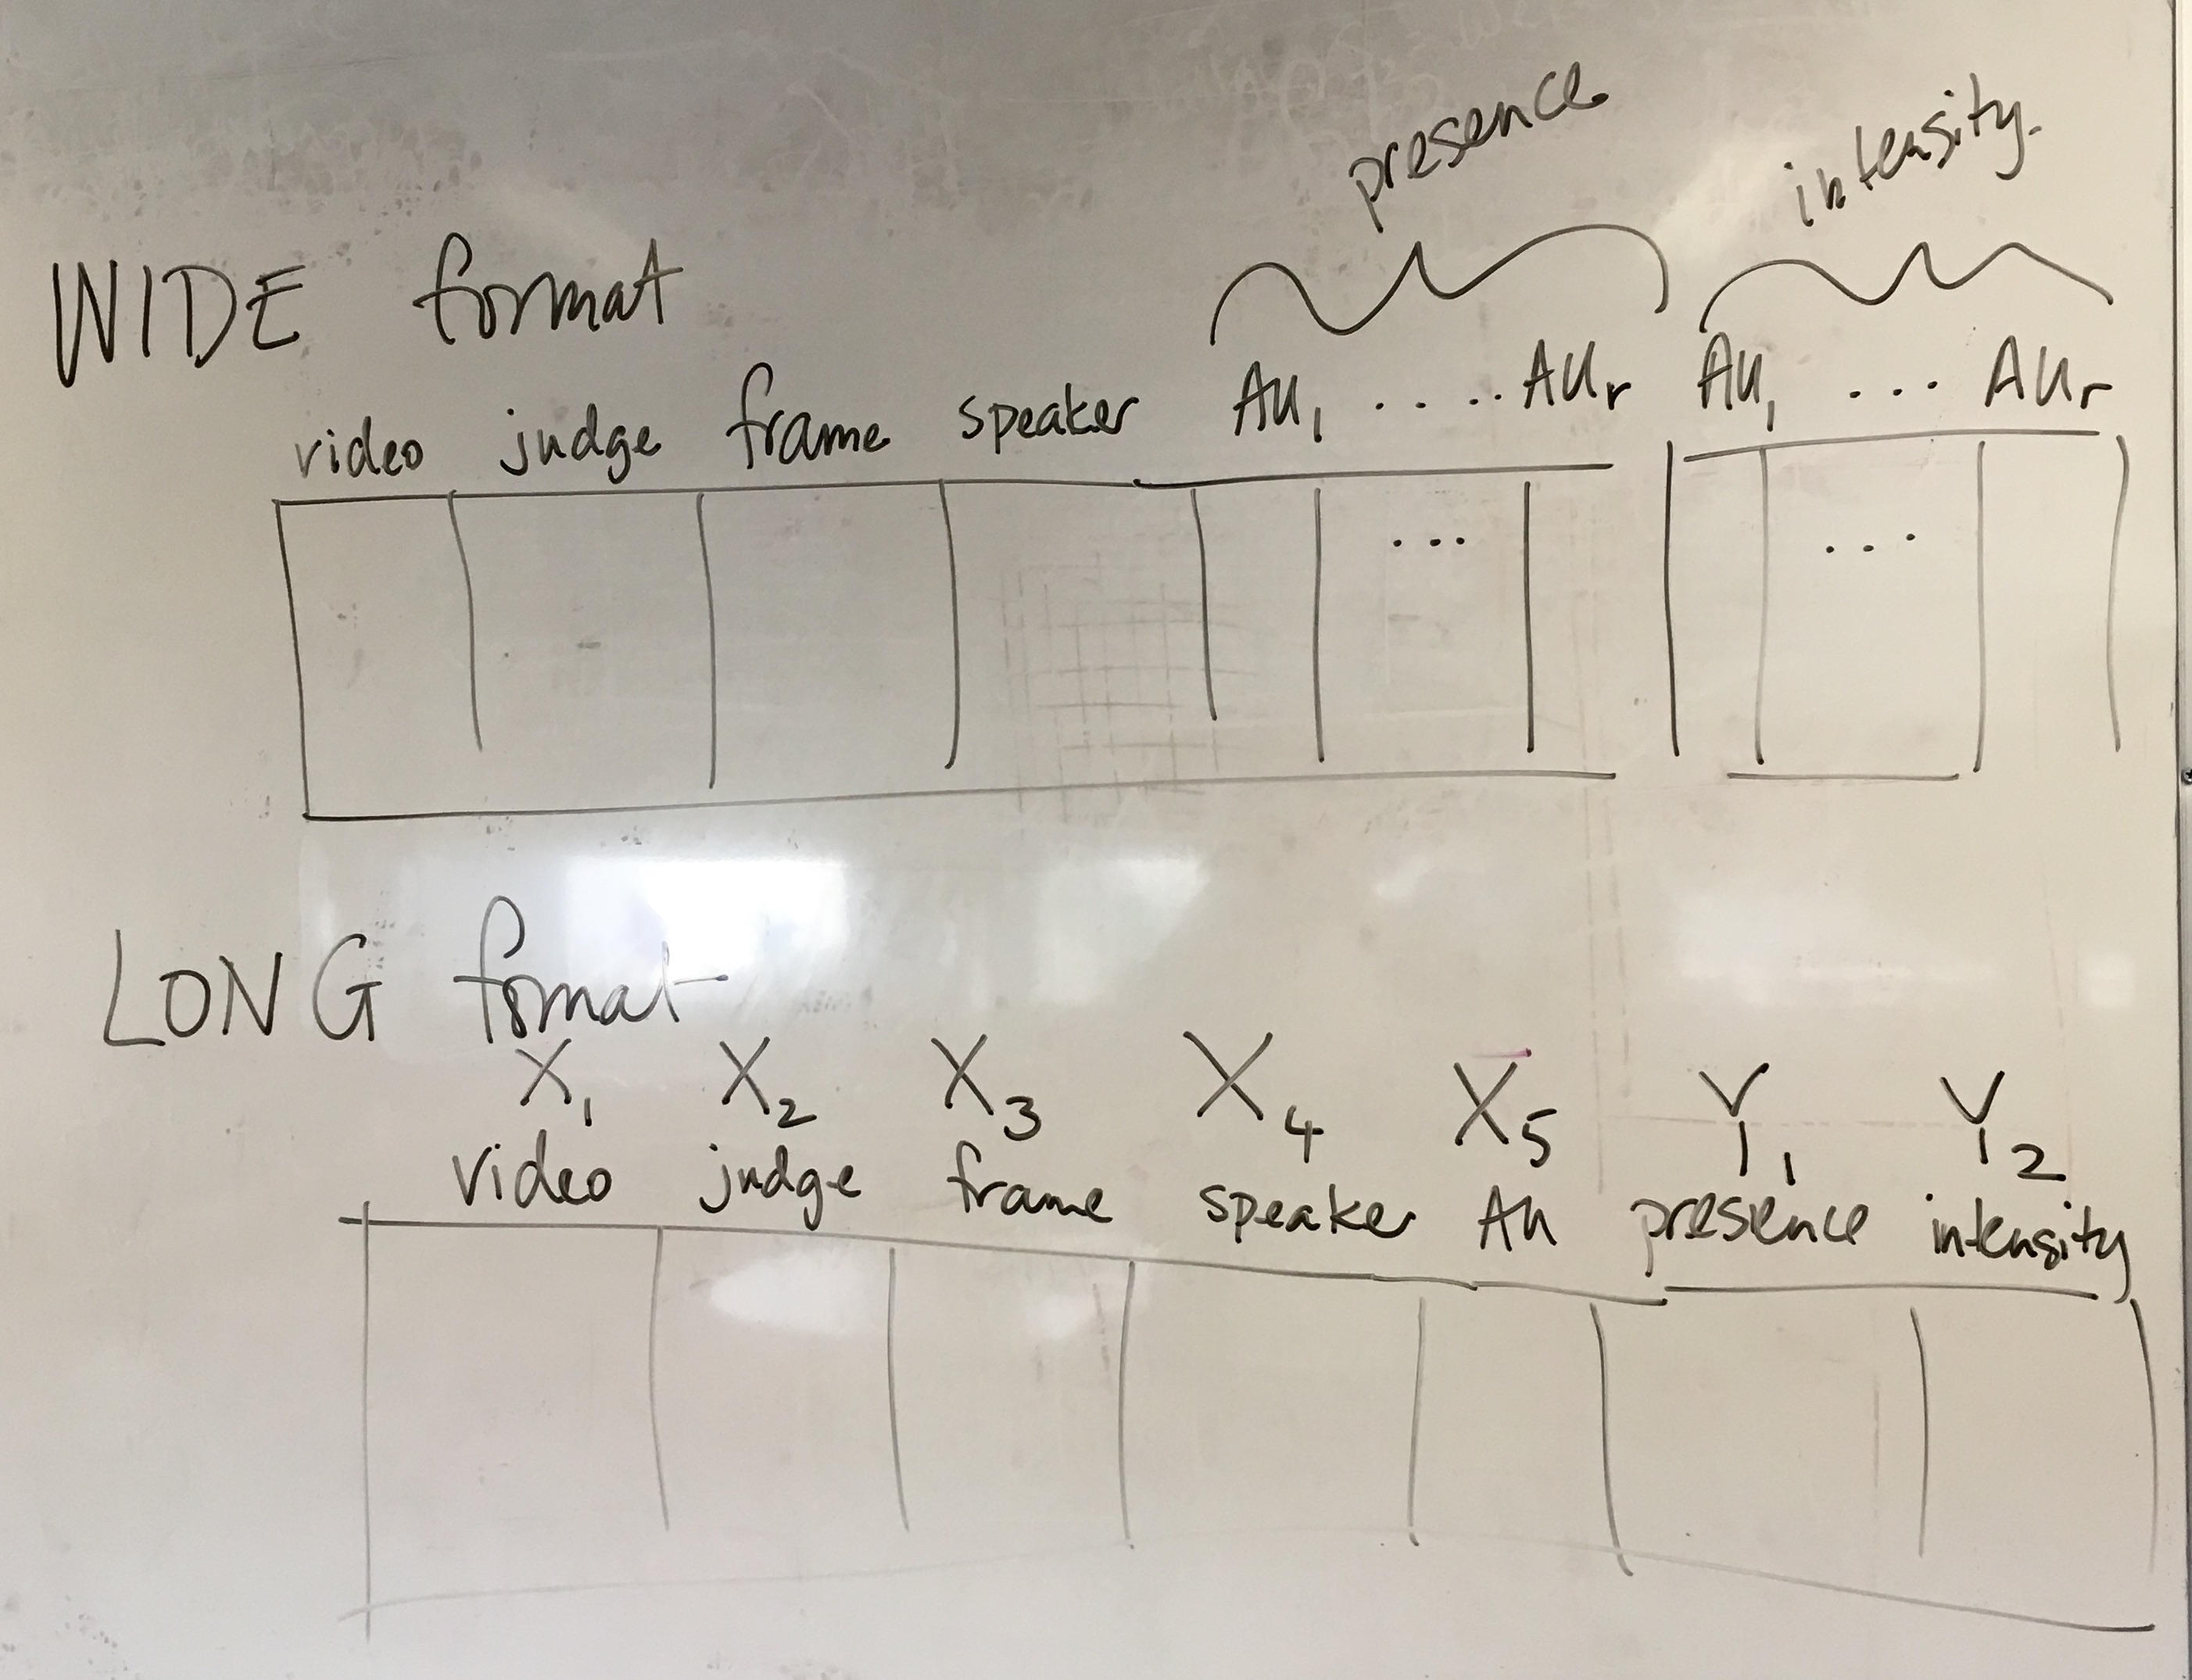 presence intensity.
WIDE format
video judge frame speaker AU₁ ..... AUᵣ AU₁ ... AUᵣ
... ...
LONG fomat
X₁ X₂ X₃ X₄ X₅ Y₁ Y₂
video judge frame speaker AU presence intensity